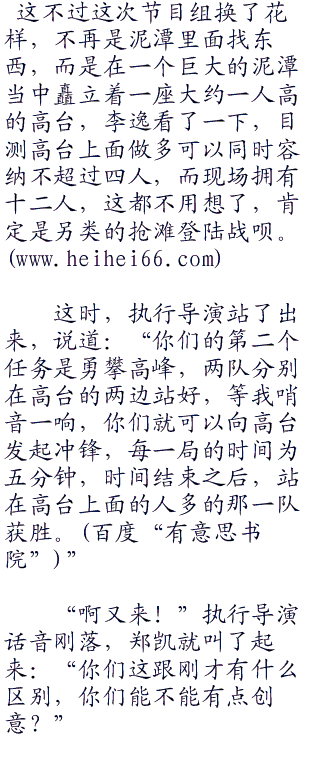 这不过这次节目组换了花
样，不再是泥潭里面找东
西，而是在一个巨大的泥潭
当中矗立着一座大约一人高
的高台，李逸看了一下，目
测高台上面做多可以同时容
纳不超过四人，而现场拥有
十二人，这都不用想了，肯
定是另类的抢滩登陆战呗。
(www.heihei66.com)
这时，执行导演站了出
来，说道：“你们的第二个
任务是勇攀高峰，两队分别
在高台的两边站好，等我哨
音一响，你们就可以向高台
发起冲锋，每一局的时间为
五分钟，时间结束之后，站
在高台上面的人多的那一队
获胜。(百度“有意思书
院”)”
“啊又来！”执行导演
话音刚落，郑凯就叫了起
来：“你们这跟刚才有什么
区别，你们能不能有点创
意？”